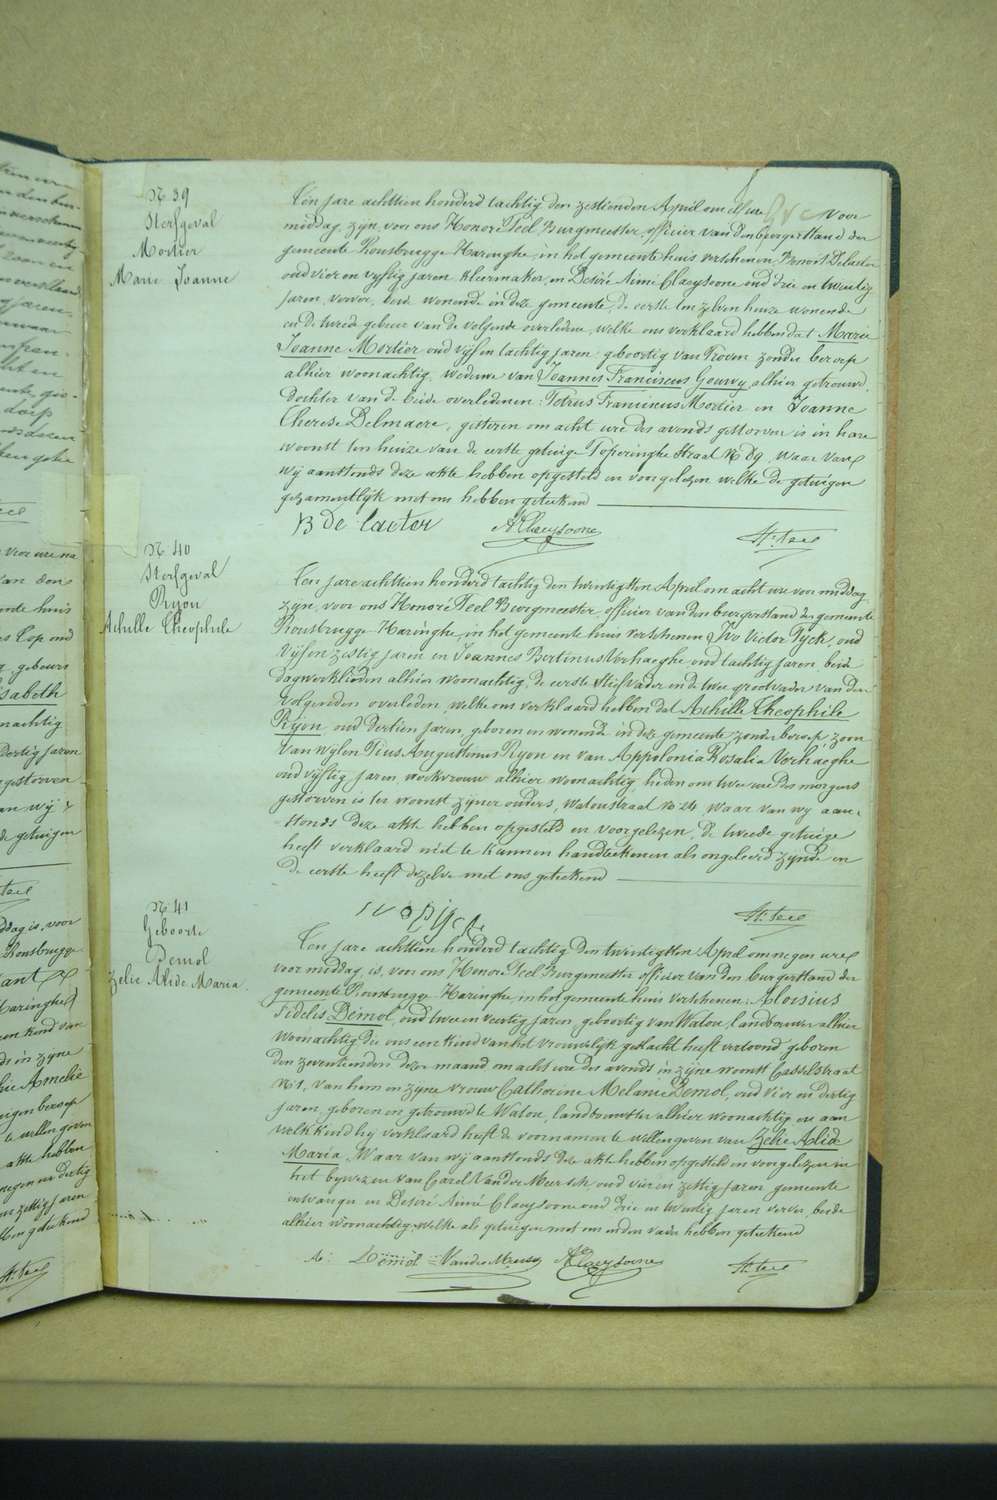 N 39
Sterfgeval
Mortier
Marie Joanne
Ten jare achttien honderd tachtig den zestienden April om elf ure voor
middag, zijn, voor ons Honoré Teel, Burgmeester, officier van den burgerstand der
gemeente Rousbrugge-Haringhe, in het gemeentehuis verschenen Benoit Delacter
oud vier en vyftig jaren kleermaker, en Désiré Aimé Claeysoone oud drie en twintig
jaren, verver, beide wonende in deze gemeente, de eerste ten zelven huize wonende
en de tweede gebuer van de volgende overledene, welke ons verklaard hebben dat Marie
Joanne Mortier oud vijf en tachtig jaren geboortig van Proven zonder beroep
alhier woonachtig, weduwe van Joannes Franciscus Gouwy alhier getrouwd,
dochter van de beide overledenen: Petrus Franciscus Mortier en Joanne
Therese Delmaere, gisteren om acht ure des avonds gestorven is in hare
woonst ten huize van de eerste getuige Poperinghe straat N 89, waar van
wij aanstonds deze akte hebben opgesteld en voorgelezen welke de getuigen
gezamentlijk met ons hebben geteekend
B de lacter A Claeysoone H. Teel
N 40
Sterfgeval
Ryon
Achille Theophile
Ten jare achttien honderd tachtig den twintigsten April om acht ure voormiddag,
zijn, voor ons Honoré Teel Burgmeester, officier van den burgerstand der gemeente
Rousbrugge-Haringhe, in het gemeentehuis verschenen Ivo Victor Pyck, oud
vijf en zestig jaren en Joannes Bertinus Verhaeghe oud tachtig jaren beide
dagwerklieden alhier woonachtig, de eerste stiefvader en de twee grootvader van den
volgenden overleden, welke ons verklaard hebben dat Achille Theophile
Ryon oud dertien jaren, geboren en wonende in deze gemeente zonder beroep, zoon
van wylen Pius Augustinus Ryon en van Appolonia Rosalia Verhaeghe
oud vijftig jaren werkvrouw alhier woonachtig, heden om twee ure des morgens
gestorven is ter woonst zijner ouders, Watoustraat N 24, waar van wy aan-
stonds deze akte hebben opgesteld en voorgelezen, de tweede getuige
heeft verklaard niet te kunnen handteekenen als ongeleerd zijnde en
de eerste heeft dezelve met ons geteekend
ivo pijck H. Teel
N 41
Geboorte
Demol
Zelie Alide Maria
Ten jare achttien honderd tachtig den twintigsten April om negen ure
voor middag, is, voor ons Honoré Teel Burgmeester officier van den burgerstand der
gemeente Rousbrugge-Haringhe, in het gemeentehuis verschenen: Aloisius
Fidelis Demol, oud twee en veertig jaren geboortig van Watou, landbouwer alhier
woonachtig die ons eene kind van het vrouwelyk geslacht heeft vertoond geboren
den zeventienden dezer maand om acht ure des avonds in zijne woonst Casselstraat
N 1, van hem en zijne vrouw Catherine Melanie Demol, oud vier en dertig
jaren, geboren en getrouwd te Watou, landbouwster alhier woonachtig en aan
welk kind hij verklaard heeft de voornamen te willen geven van Zelie Alide
Maria. Waar van wij aanstonds deze akte hebben opgesteld en voorgelezen in
het bijwezen van Carel Vander Meersch oud vier en zestig jaren gemeente
ontvanger en Désiré Aimé Claeysoone oud drie en twintig jaren verver, beide
alhier woonachtig, welke als getuigen met ons en den vader hebben geteekend
A: Demol Vander Meersch A Claeysoone H. Teel